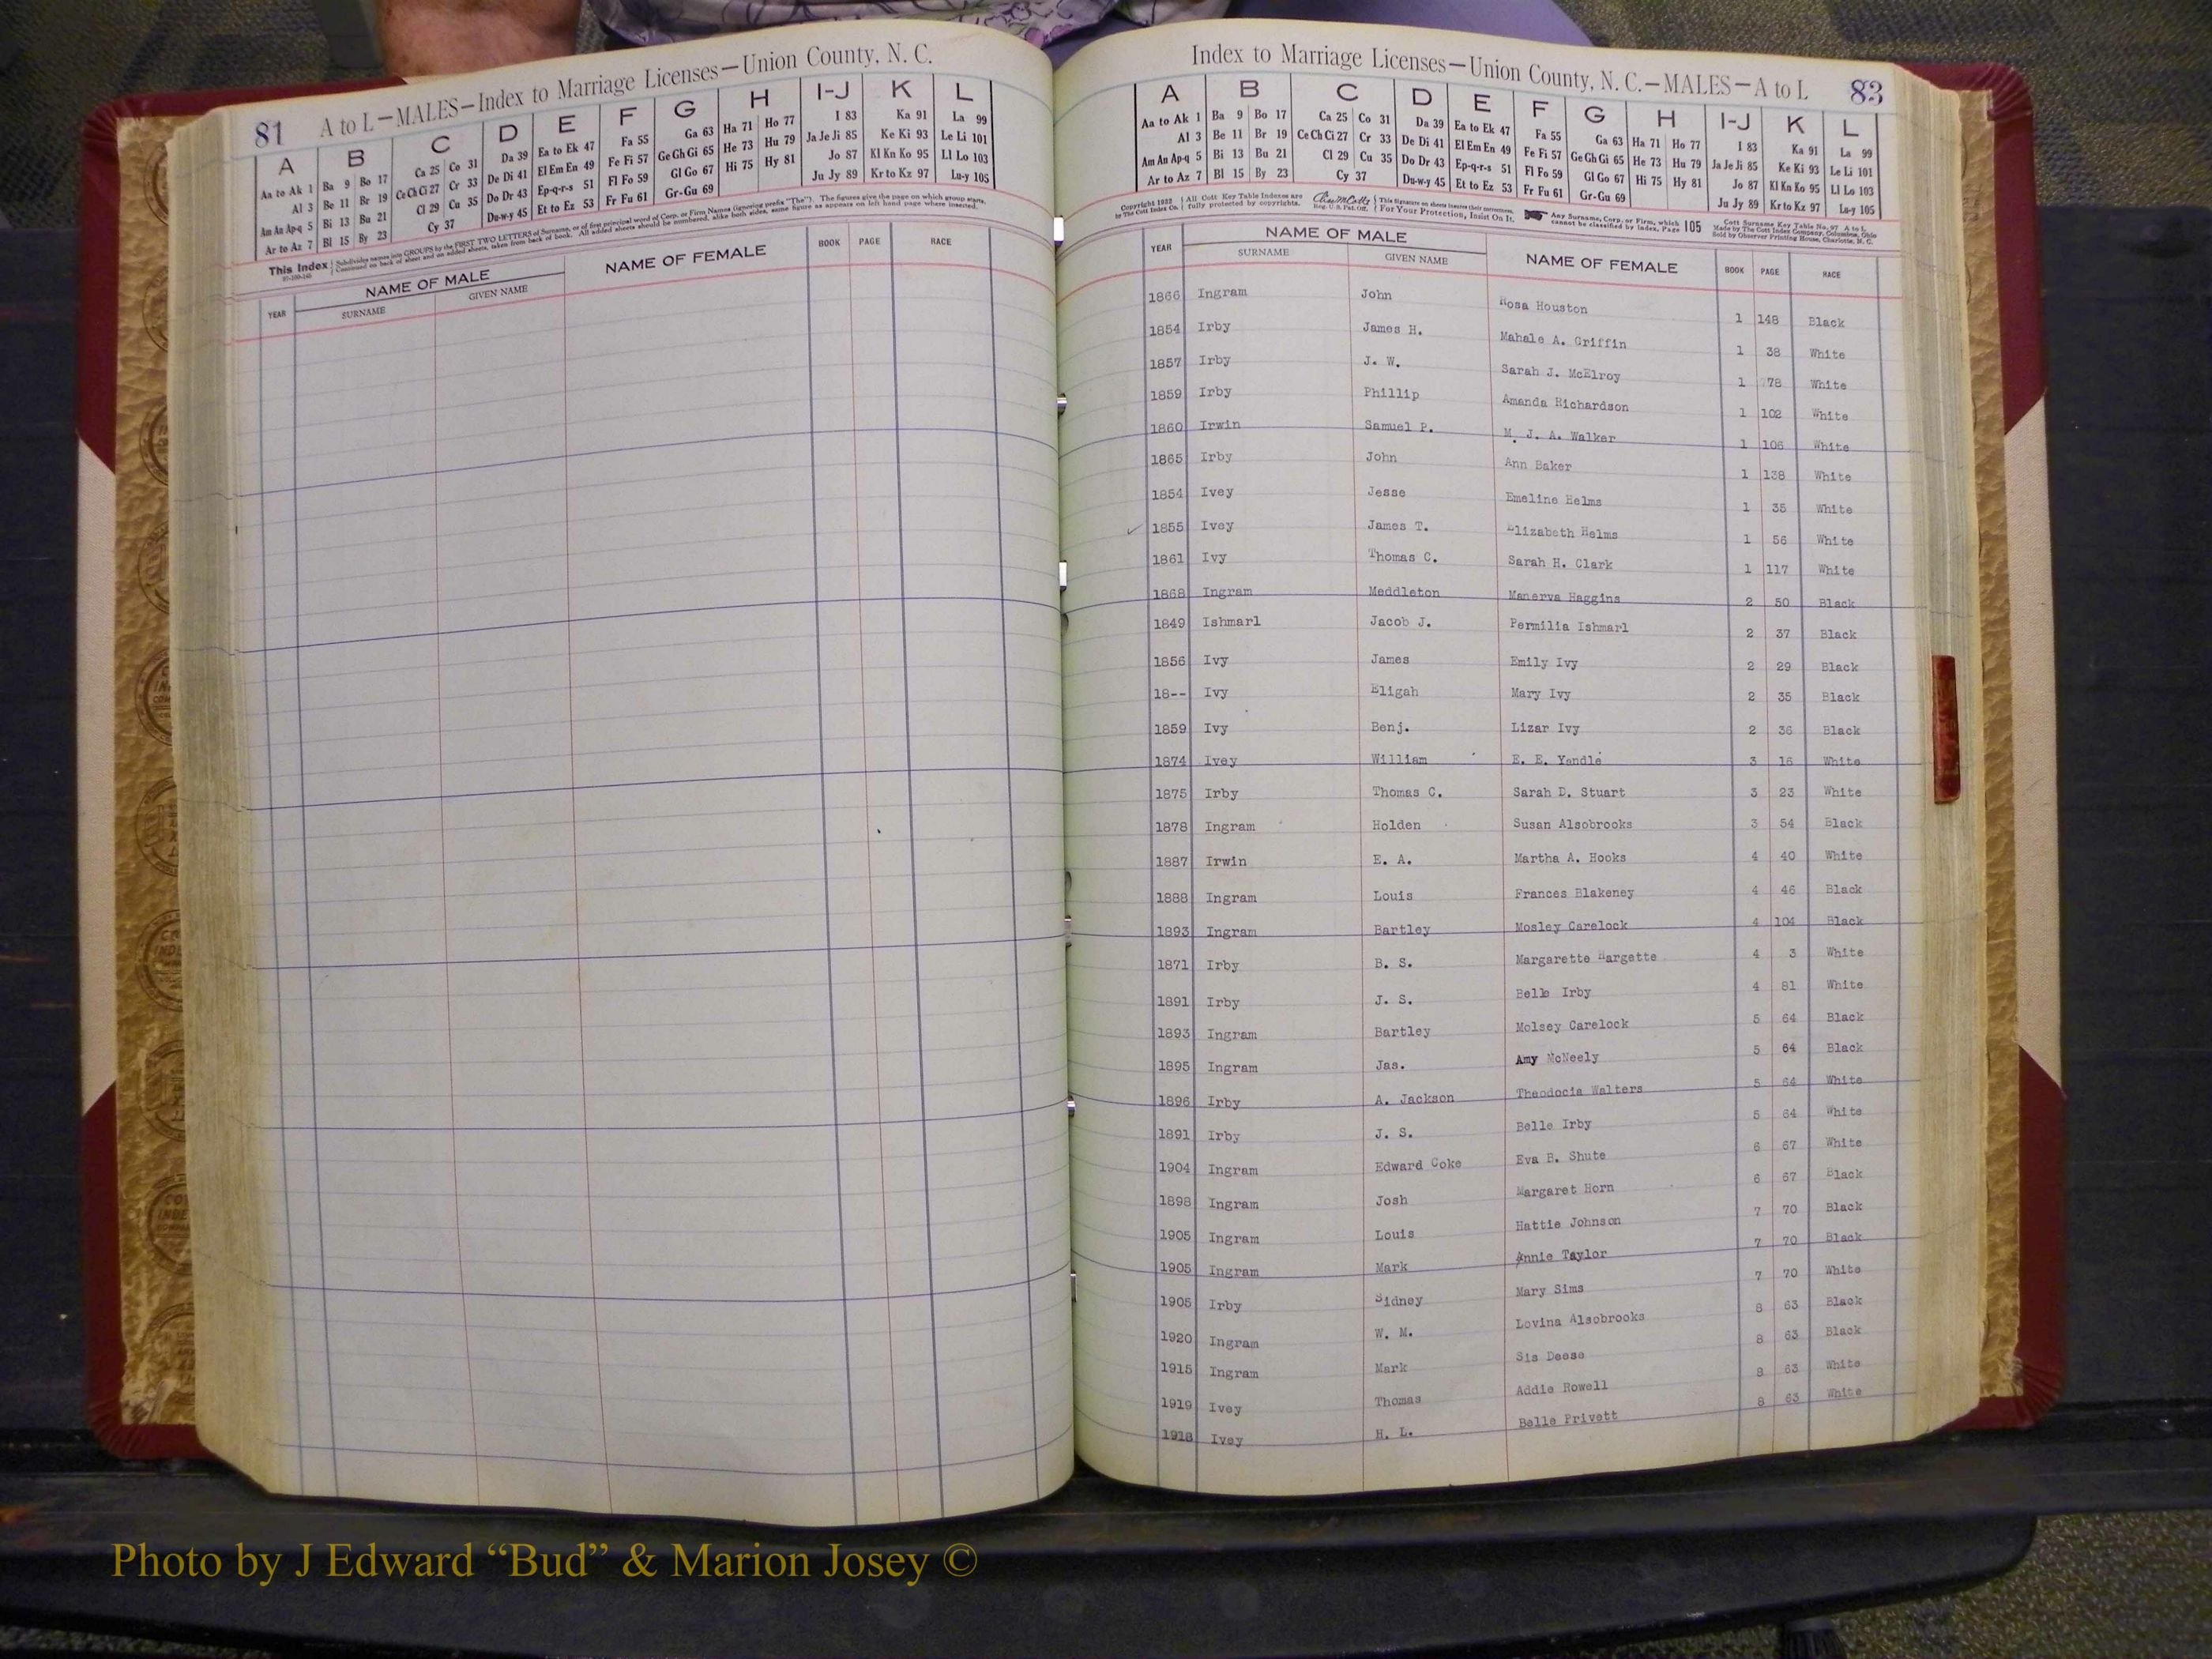 81 A to L—MALES—Index to Marriage Licenses—Union County, N. C.
A B C D E F G H I-J K L
Aa to Ak 1 Ba 9 Bo 17 Ca 25 Co 31 Da 39 Ea to Ek 47 Fa 55 Ga 63 Ha 71 Ho 77 I 83 Ka 91 La 99
Al 3 Be 11 Br 19 Ce Ch Ci 27 Cr 33 De Di 41 El Em En 49 Fe Fi 57 Ge Gh Gi 65 He 73 Hu 79 Ja Je Ji 85 Ke Ki 93 Le Li 101
Am An Ap-q 5 Bi 13 Bu 21 Cl 29 Cu 35 Do Dr 43 Ep-q-r-s 51 Fl Fo 59 Gl Go 67 Hi 75 Hy 81 Jo 87 Kl Kn Ko 95 Ll Lo 103
Ar to Az 7 Bl 15 By 23 Cy 37 Du-w-y 45 Et to Ez 53 Fr Fu 61 Gr-Gu 69 Ju Jy 89 Kr to Kz 97 Lu-y 105
This Index Subdivides names into GROUPS by the FIRST TWO LETTERS of Surname, or of first principal word of Corp. or Firm Names (ignoring prefix "The"). The figures give the page on which group starts.
Continued on back of sheet and on added sheets, taken from back of book. All added sheets should be numbered, alike both sides, same figure as appears on left hand page where inserted.
YEAR NAME OF MALE NAME OF FEMALE BOOK PAGE RACE
SURNAME GIVEN NAME
Index to Marriage Licenses—Union County, N. C.—MALES—A to L 83
A B C D E F G H I-J K L
Aa to Ak 1 Ba 9 Bo 17 Ca 25 Co 31 Da 39 Ea to Ek 47 Fa 55 Ga 63 Ha 71 Ho 77 I 83 Ka 91 La 99
Al 3 Be 11 Br 19 Ce Ch Ci 27 Cr 33 De Di 41 El Em En 49 Fe Fi 57 Ge Gh Gi 65 He 73 Hu 79 Ja Je Ji 85 Ke Ki 93 Le Li 101
Am An Ap-q 5 Bi 13 Bu 21 Cl 29 Cu 35 Do Dr 43 Ep-q-r-s 51 Fl Fo 59 Gl Go 67 Hi 75 Hy 81 Jo 87 Kl Kn Ko 95 Ll Lo 103
Ar to Az 7 Bl 15 By 23 Cy 37 Du-w-y 45 Et to Ez 53 Fr Fu 61 Gr-Gu 69 Ju Jy 89 Kr to Kz 97 Lu-y 105
Copyright 1922 by The Cott Index Co. All Cott Key Table Indexes are fully protected by copyrights. Reg. U.S. Pat. Off. For Your Protection, Insist On It. Any Surname, Corp. or Firm, which cannot be classified by Index, Page 105 Cott Surname Key Table No. 97 A to L
Made by The Cott Index Company, Columbus, Ohio
Sold by Observer Printing House, Charlotte, N. C.
YEAR NAME OF MALE NAME OF FEMALE BOOK PAGE RACE
SURNAME GIVEN NAME
1866 Ingram John Rosa Houston 1 148 Black
1854 Irby James H. Mahale A. Griffin 1 38 White
1857 Irby J. W. Sarah J. McElroy 1 78 White
1859 Irby Phillip Amanda Richardson 1 102 White
1860 Irwin Samuel P. M. J. A. Walker 1 106 White
1865 Irby John Ann Baker 1 138 White
1854 Ivey Jesse Emeline Helms 1 35 White
1855 Ivey James T. Elizabeth Helms 1 56 White
1861 Ivy Thomas C. Sarah H. Clark 1 117 White
1868 Ingram Meddleton Manerva Haggins 2 50 Black
1849 Ishmarl Jacob J. Permilia Ishmarl 2 37 Black
1856 Ivy James Emily Ivy 2 29 Black
18-- Ivy Eligah Mary Ivy 2 35 Black
1859 Ivy Benj. Lizar Ivy 2 36 Black
1874 Ivey William E. E. Yandle 3 16 White
1875 Irby Thomas C. Sarah D. Stuart 3 23 White
1878 Ingram Holden Susan Alsobrooks 3 54 Black
1887 Irwin E. A. Martha A. Hooks 4 40 White
1888 Ingram Louis Frances Blakeney 4 46 Black
1893 Ingram Bartley Mosley Carelock 4 104 Black
1871 Irby B. S. Margarette Hargette 4 3 White
1891 Irby J. S. Belle Irby 4 81 White
1893 Ingram Bartley Molsey Carelock 5 64 Black
1895 Ingram Jas. Amy McNeely 5 64 Black
1896 Irby A. Jackson Theodocia Walters 5 64 White
1891 Irby J. S. Belle Irby 5 64 White
1904 Ingram Edward Coke Eva B. Shute 6 67 White
1898 Ingram Josh Margaret Horn 6 67 Black
1905 Ingram Louis Hattie Johnson 7 70 Black
1905 Ingram Mark Annie Taylor 7 70 Black
1905 Irby Sidney Mary Sims 7 70 White
1920 Ingram W. M. Lovina Alsobrooks 8 63 Black
1915 Ingram Mark Sis Deese 8 63 Black
1919 Ivey Thomas Addie Rowell 8 63 White
1918 Ivey H. L. Belle Privett 8 63 White
Photo by J Edward “Bud” & Marion Josey ©